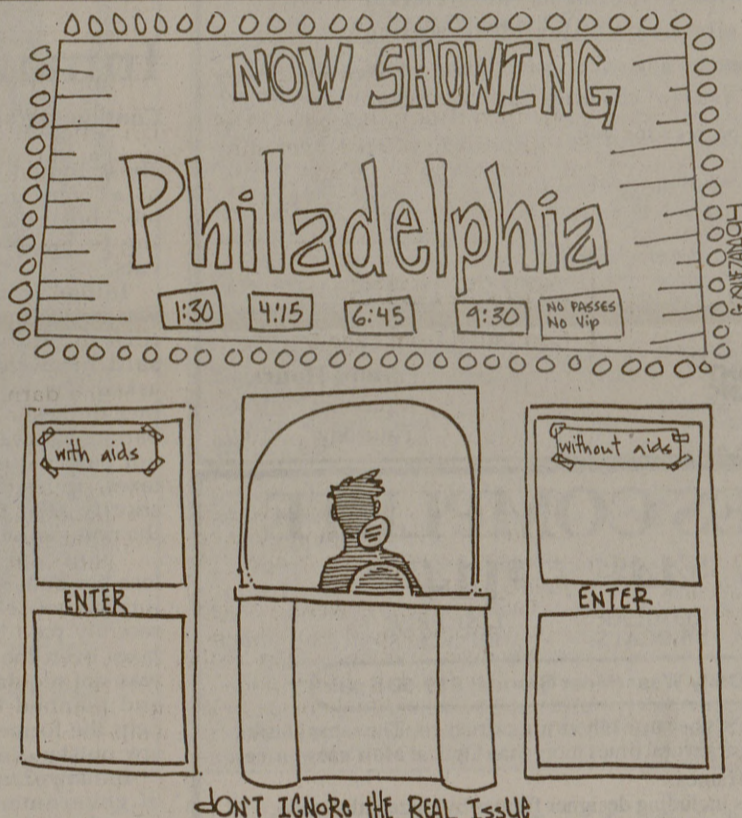 NOW SHOWING
Philadelphia
1:30 4:15 6:45 9:30 NO PASSES
No Vip
with aids
without aids
ENTER
ENTER
dON'T IGNORe tHE REAL ISSUe